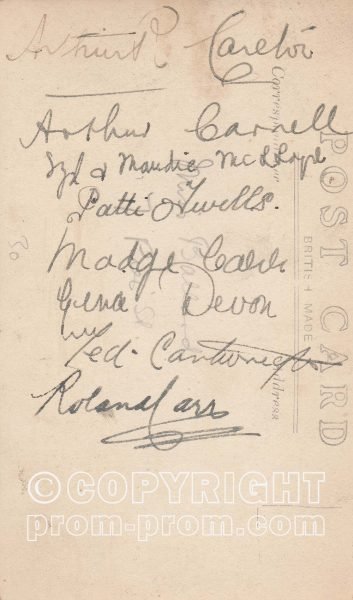 Arthur R Carlton
Arthur Carnell
Syd & Maudie McLloyd
Patti Twells.
Madge
Gena Devon
Ted Cartwright
Roland Carr
POST CARD
BRITISH MADE
Correspondence
Address
©COPYRIGHT
prom-prom.com